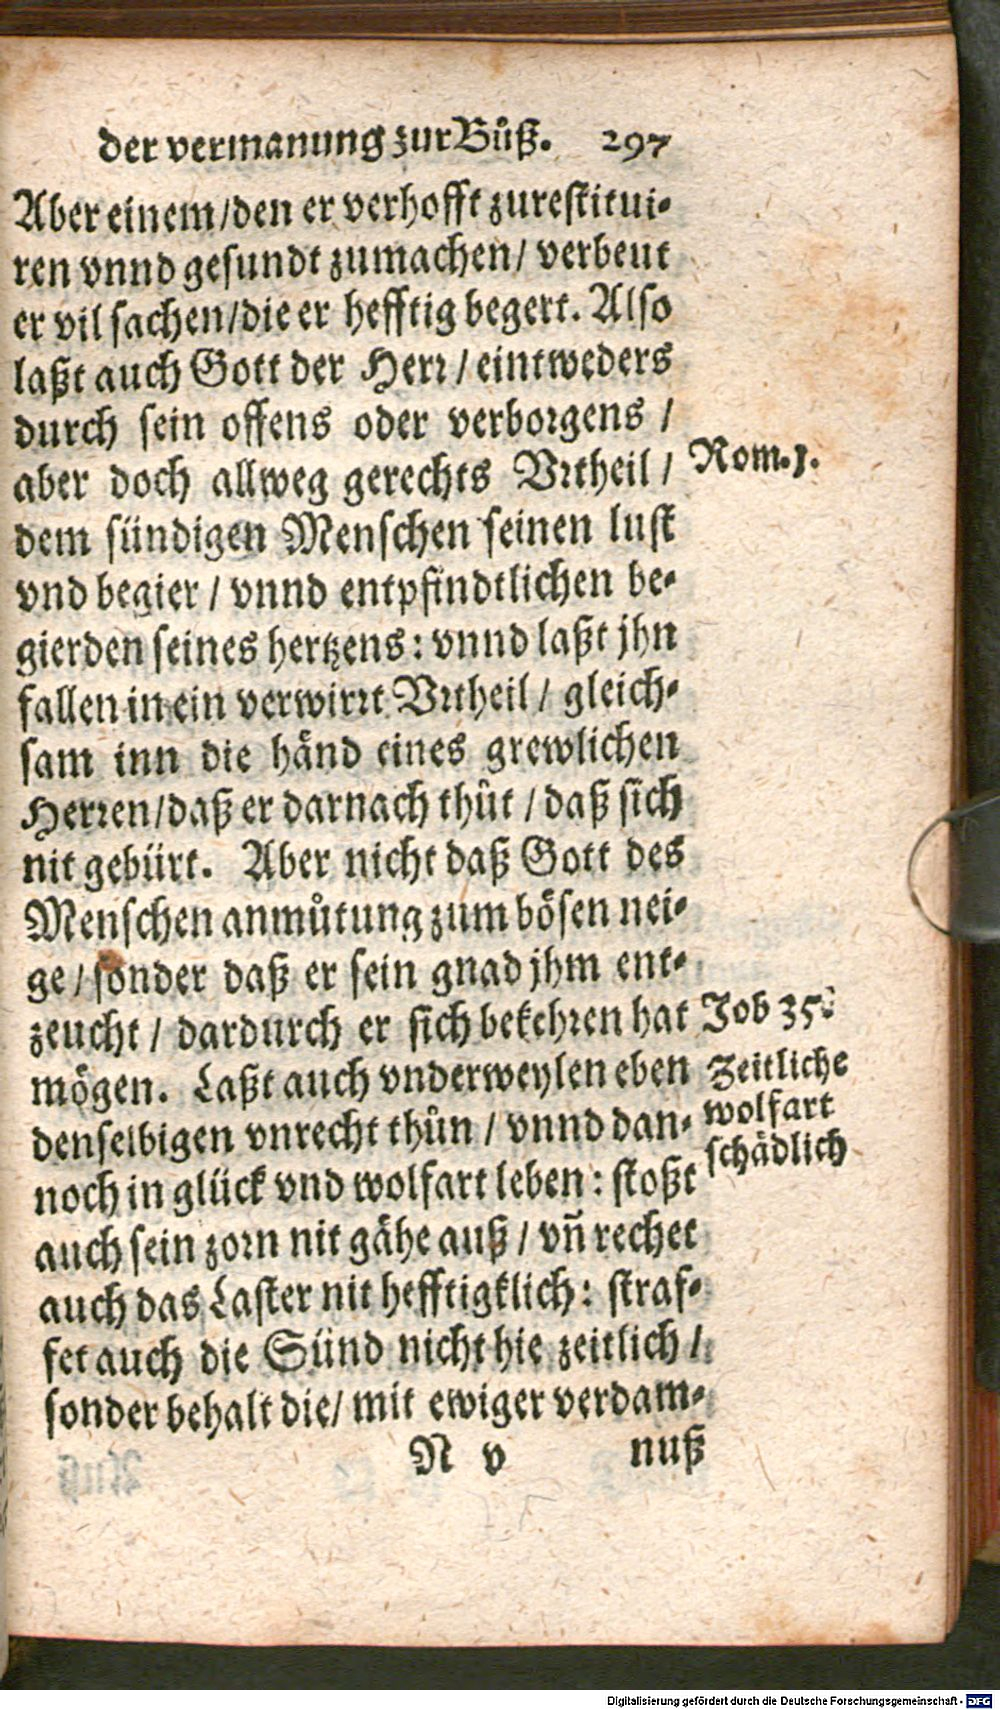 der vermanung zur Bůß. 297
Aber einem/den er verhofft zurestitui-
ren vnnd gesundt zumachen/ verbeut
er vil sachen/die er hefftig begert. Also
laßt auch Gott der Herr / eintweders
durch sein offens oder verborgens /
aber doch allweg gerechts Vrtheil /
Rom. 1.
dem sündigen Menschen seinen lust
vnd begier / vnnd entpfindtlichen be-
gierden seines hertzens: vnnd laßt jhn
fallen in ein verwirrt Vrtheil / gleich-
sam inn die händ eines grewlichen
Herren/daß er darnach thůt / daß sich
nit gebürt. Aber nicht daß Gott des
Menschen anmůtung zum bösen nei-
ge / sonder daß er sein gnad jhm ent-
zeucht / dardurch er sich bekehren hat
Job 35.
mögen. Laßt auch vnderweylen eben
Zeitliche
denselbigen vnrecht thůn / vnnd dan-
wolfart
noch in glück vnd wolfart leben: stoßt
schädlich
auch sein zorn nit gähe auß / vñ rechet
auch das Laster nit hefftigklich: straf-
fet auch die Sünd nicht hie zeitlich /
sonder behalt die/ mit ewiger verdam-
N v nuß
Digitalisierung gefördert durch die Deutsche Forschungsgemeinschaft - DFG